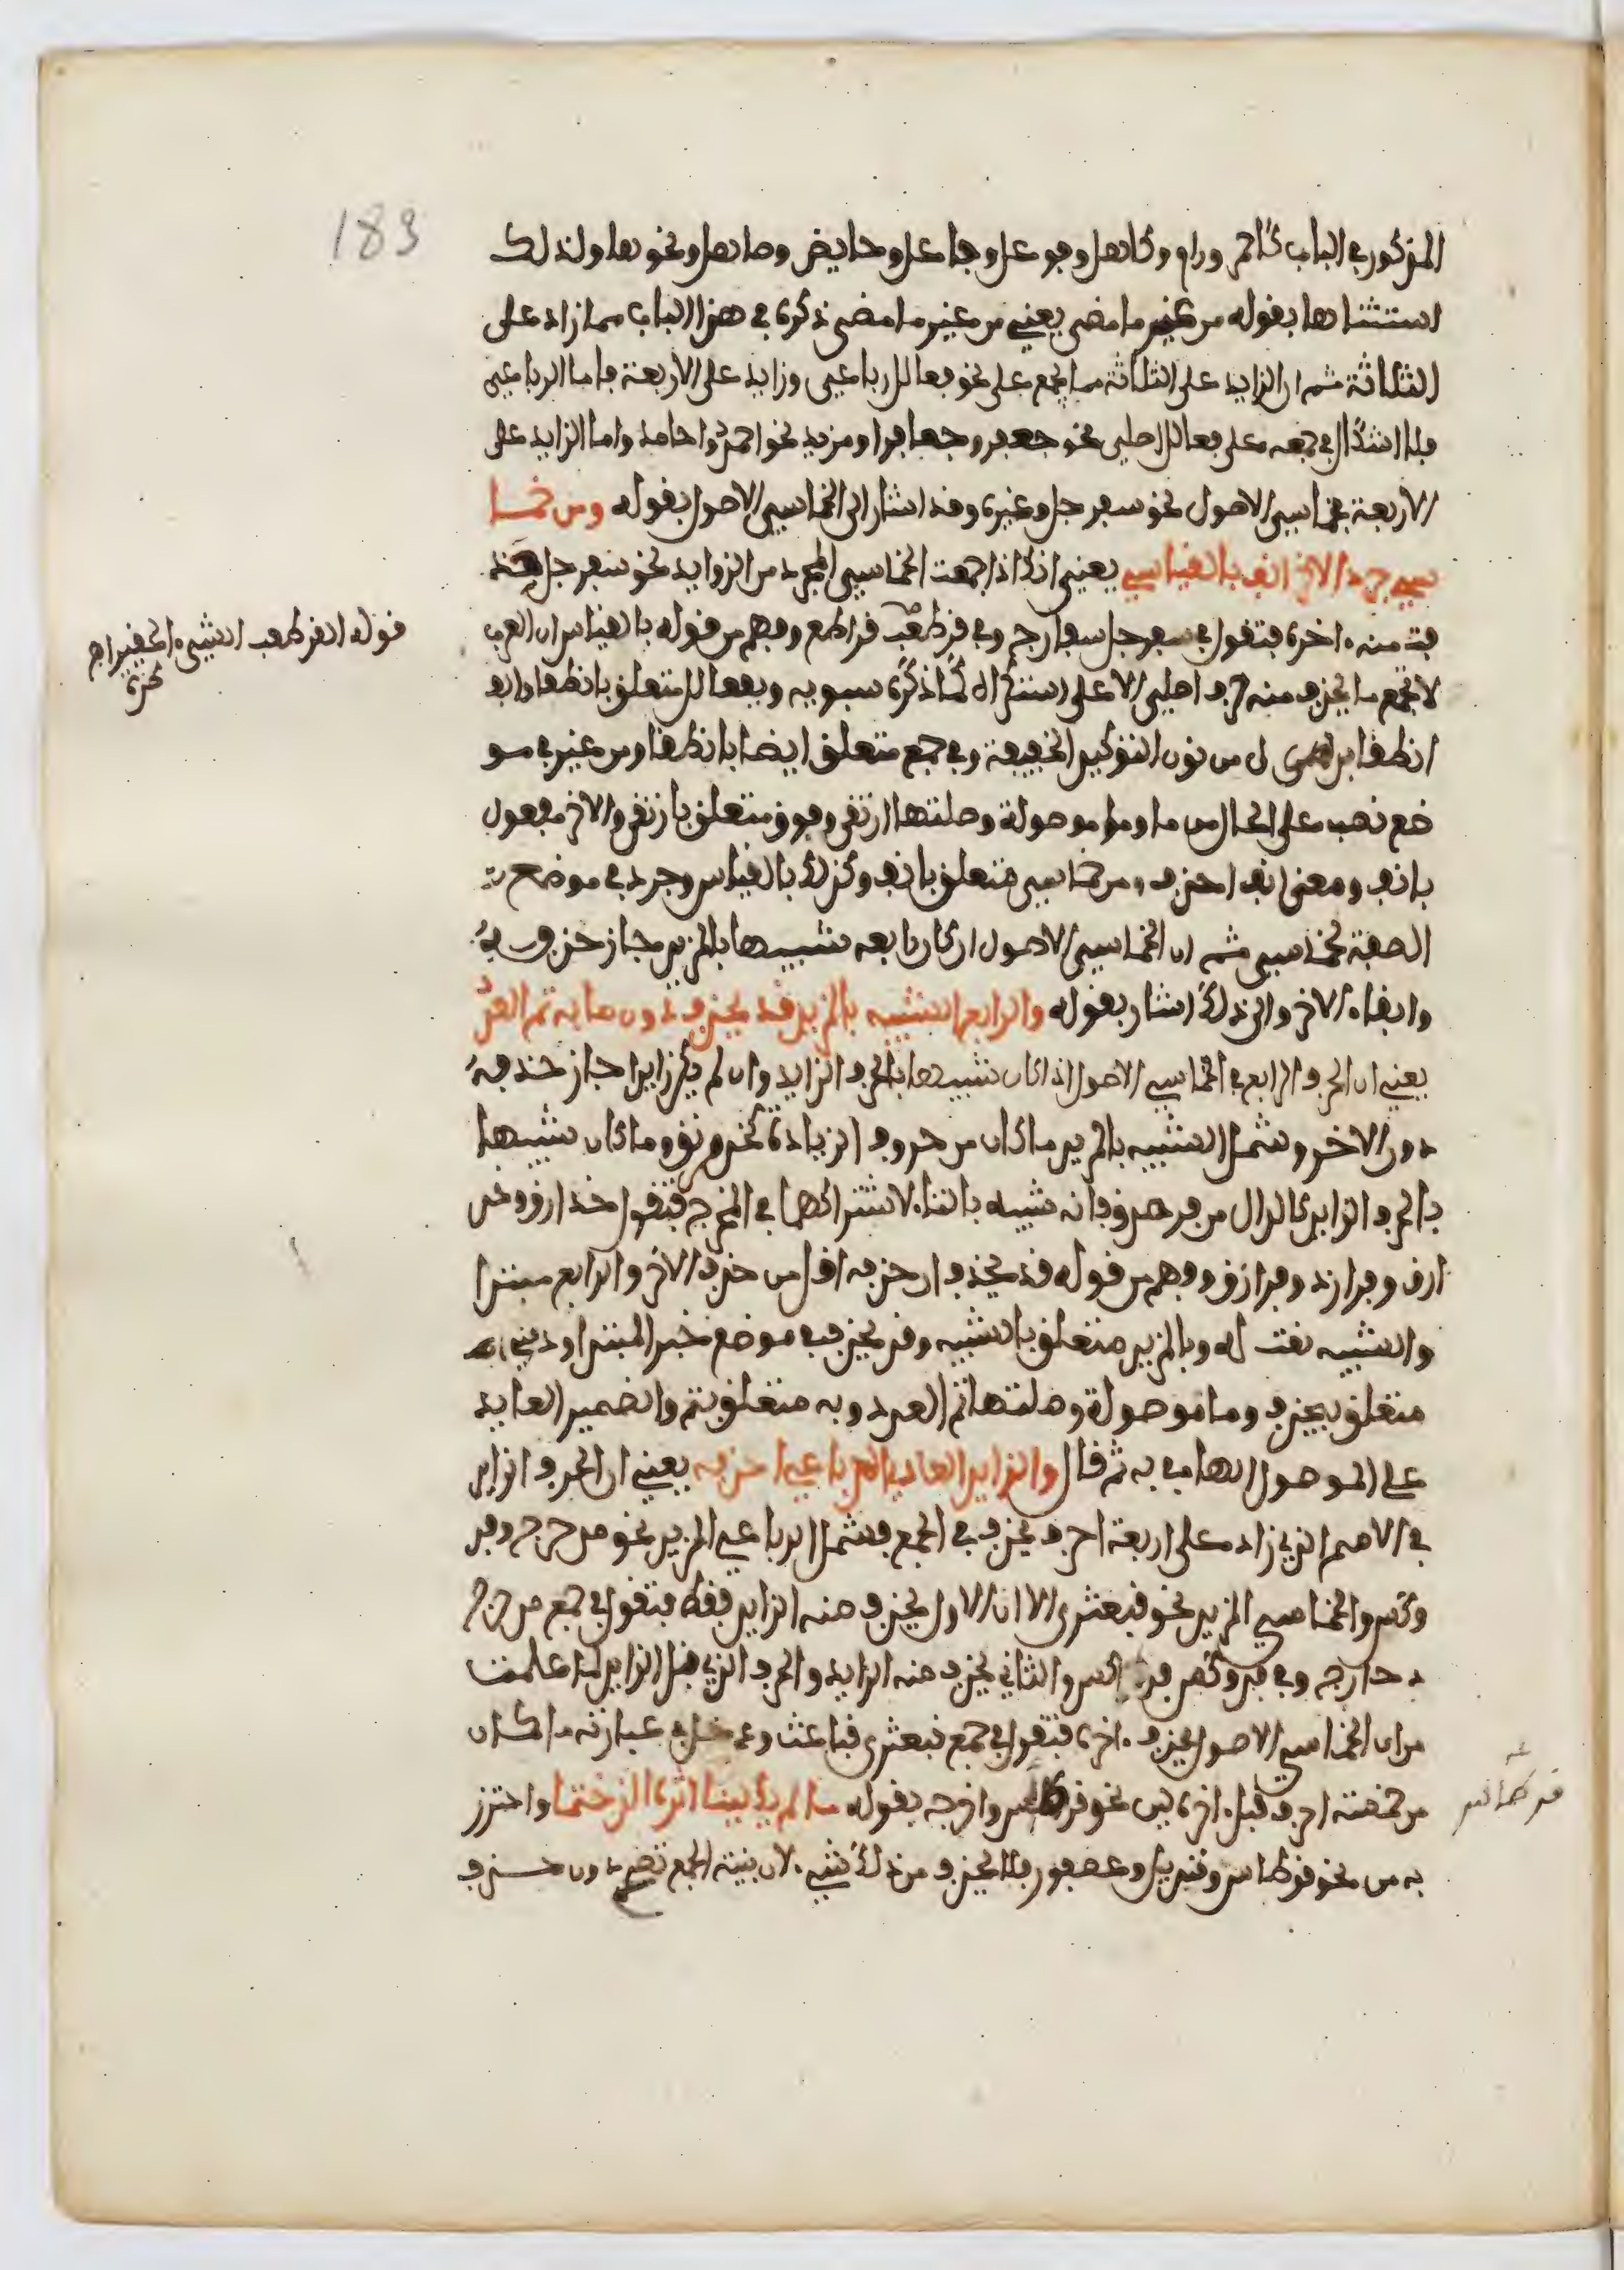 183
المذكور في الباب كاحمر ورام وكاهل وفوعل وفاعل وحايض وصاهل ونحوها ولذلك
استثناها بقوله من غير ما مضى يعني من غير ما مضى ذكره في هذا الباب مما زاد على
الثلاثة ثم ان الزايد على الثلاثة مما يجمع على نحو فعالل رباعي وزايد على الاربعة فاما الرباعي
فلا اشكال في جمعه على فعالل اصلي نحو جعفر وجعافر او مزيد نحو احمد واحامد واما الزايد على
الاربعة خماسي الاصول نحو سفرجل وغيره وقد اشار الى الخماسي الاصول بقوله ومن خما
سي جرد الاخر انف بالقياس يعني انك اذا جمعت الخماسي المجرد من الزوايد نحو سفرجل حذ
فت منه اخره فتقول في سفرجل سفارج وفي قرطعب قراطع وفهم من قوله بالقياس ان العرب
لا تجمع ما يحذف منه حرف اصلي الا على استكراه كما ذكره سيبويه وبفعالل متعلق بانطقا والف
انطقا بدل من نون التوكيد الخفيفة وفي جمع متعلق ايضا بانطقا ومن غير في مو
ضع نصب على الحال من ما وما موصولة وصلتها ارتقى وفوق متعلق بارتقى والاخر مفعول
بانف ومعنى انف احذف ومن خماسي متعلق بانف وكذلك بالقياس وجرد في موضع
الصفة لخماسي ثم ان الخماسي الاصول ان كان رابعه شبيها بالمزيد جاز حذفه
وابقاء الاخر والى ذلك اشار بقوله والرابع الشبيه بالمزيد قد يحذف دون ما به تم العدد
يعني ان الحرف الرابع في الخماسي الاصول اذا كان شبيها بالحرف الزايد وان لم يكن زايدا جاز حذفه
دون الاخر وشمل الشبيه بالمزيد ما كان من حروف الزيادة كخدرنق وما كان شبيها
بالحرف الزايد كالدال من فرزدق فانه شبيه بالتاء لاشتراكهما في المخرج فتقول خدارق وخد
ارن وفرازد وفرازق وفهم من قوله قد يحذف ان حذفه اقل من حذف الاخر والرابع مبتدا
والشبيه نعت له وبالمزيد متعلق بالشبيه وقد يحذف في موضع خبر المبتدا ودون
متعلق بيحذف وما موصولة وصلتها تم العدد وبه متعلق بتم والضمير العايد
على الموصول الهاء في به ثم قال وزايد العادي الرباعي احذفه يعني ان الحرف الزايد
في الاسم الذي زاد على اربعة احرف يحذف في الجمع فشمل الرباعي المزيد نحو مدحرج وفد
وكس والخماسي المزيد نحو قبعثرى الا ان الاول يحذف منه الزايد فقط فتقول في جمع مدحرج
دحارج وفي فدوكس فداكس والثاني يحذف منه الزايد والحرف الذي قبل الزايد لما علمت
من ان الخماسي الاصول يحذف اخره فتقول في جمع قبعثرى قباعث ودخل في عبارته ما كان
من خمسة احرف قبل اخره لين نحو قرطاس واخرجه بقوله ما لم يك لينا اثره اللذ ختما واحترز
به من نحو قرطاس وقنديل وعصفور فلا يحذف من ذلك شيء لان بنية الجمع تصح دون حذف
قوله القرطعب الشيء الحقير اهـ
قرطاس